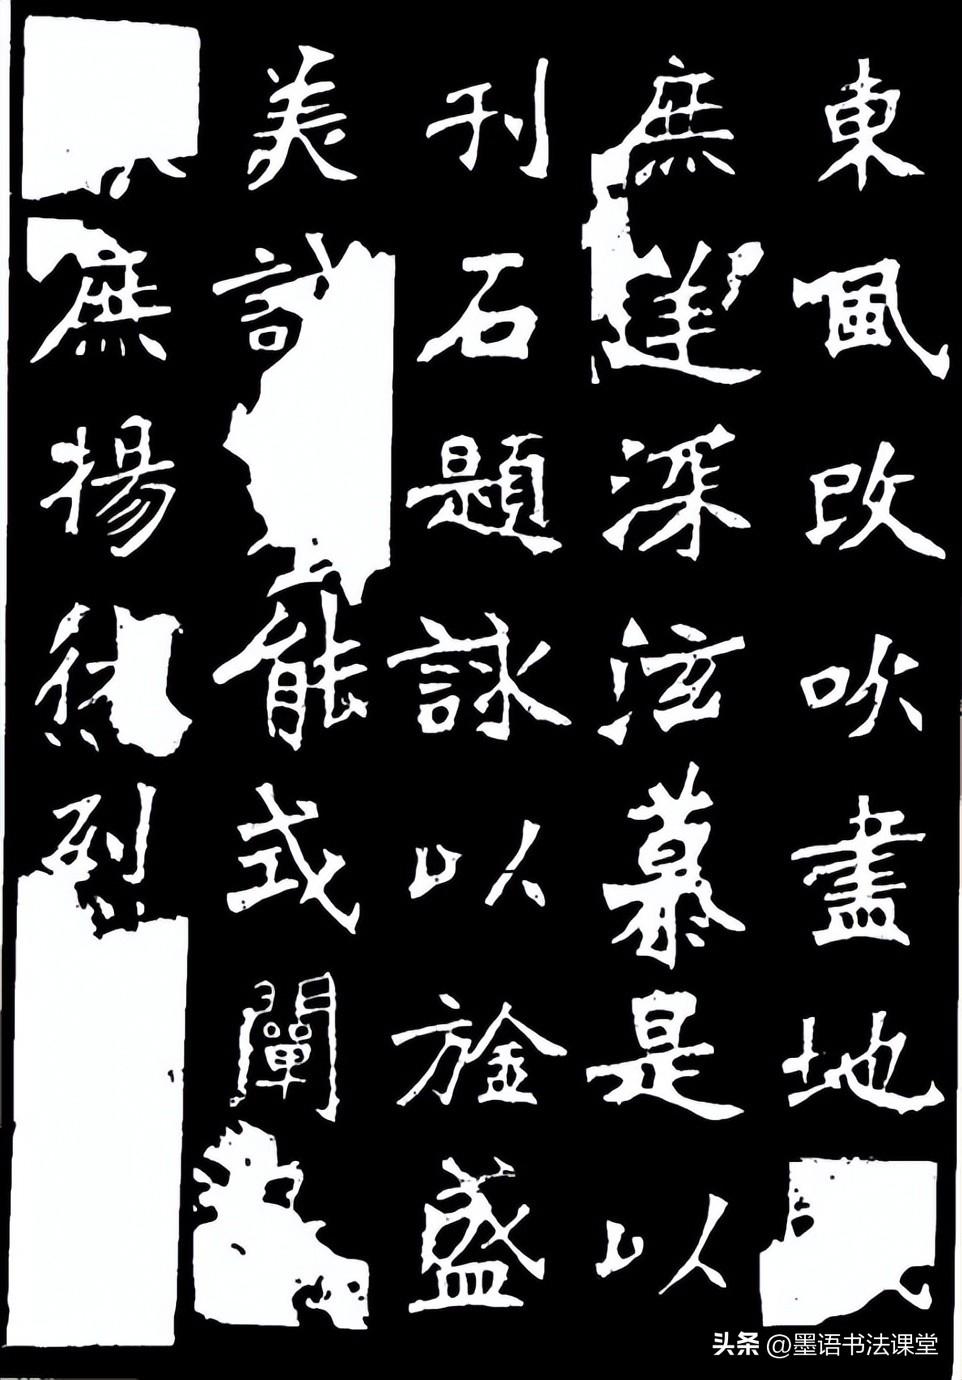 東風改吹盡地
庶深泫慕是以
刊石題詠以旌盛
美能式闡
庶揚烈
頭条 @墨语书法课堂